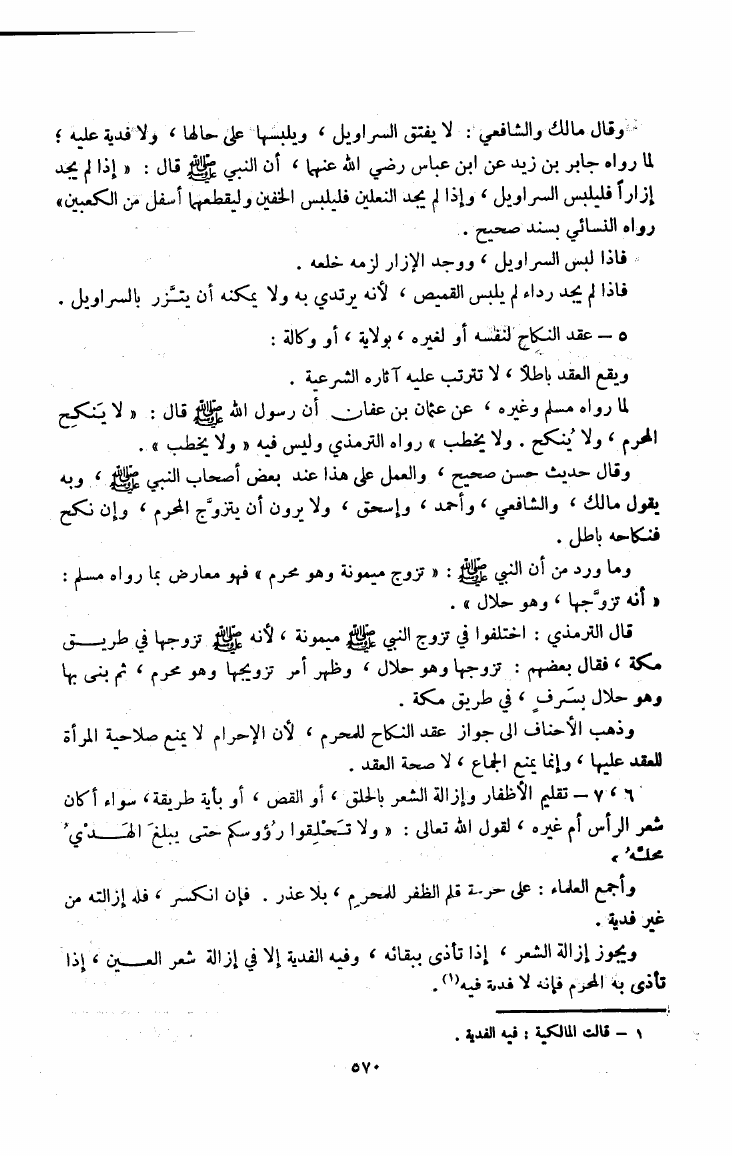 وقال مالك والشافعي : لا يفتق السراويل ، ويلبسها على حالها ، ولا فدية عليه ؛
لما رواه جابر بن زيد عن ابن عباس رضي الله عنهما ، أن النبي ﷺ قال : « إذا لم يجد
إزاراً فليلبس السراويل ، وإذا لم يجد النعلين فليلبس الخفين وليقطعهما أسفل من الكعبين»
رواه النسائي بسند صحيح .
فاذا لبس السراويل ، ووجد الإزار لزمه خلعه .
فاذا لم يجد رداء لم يلبس القميص ، لأنه يرتدي به ولا يمكنه أن يتَّزر بالسراويل .
٥ – عقد النكاحِ لنفسه أو لغيره ، بولاية ، أو وكالة :
ويقع العقد باطلًا ، لا تترتب عليه آثاره الشرعية .
لما رواه مسلم وغيره ، عن عثمان بن عفان أن رسول الله ﷺ قال : « لا يَنكِح
المحرم ، ولا يُنكح . ولا يخطب » رواه الترمذي وليس فيه « ولا يخطب » .
وقال حديث حسن صحيح ، والعمل على هذا عند بعض أصحاب النبي ﷺ ، وبه
يقول مالك ، والشافعي ، وأحمد ، وإسحق ، ولا يرون أن يتزوَّج المحرم ، وإن نكح
فنكاحه باطل .
وما ورد من أن النبي ﷺ : « تزوج ميمونة وهو محرم » فهو معارض بما رواه مسلم :
« أنه تزوَّجها ، وهو حلال » .
قال الترمذي : اختلفوا في تزوج النبي ﷺ ميمونة ، لأنه ﷺ تزوجها في طريق
مكة ، فقال بعضهم : تزوجها وهو حلال ، وظهر أمر تزويجها وهو محرم ، ثم بنى بها
وهو حلال بسَرفٍ ، في طريق مكة .
وذهب الأحناف الى جواز عقد النكاح للمحرم ، لأن الإحرام لا يمنع صلاحية المرأة
للعقد عليها ، وإنما يمنع الجماع ، لا صحة العقد .
٦ ، ٧ – تقليم الأظفار وإزالة الشعر بالحلق ، أو القص ، أو بأية طريقة، سواء أكان
شعر الرأس أم غيره ، لقول الله تعالى : « ولا تَحْلِقوا رُؤوسكم حتى يبلغَ الهَدْيُ
محلَّهُ »
وأجمع العلماء : على حرمة قلم الظفر للمحرم ، بلا عذر . فإن انكسر ، فله إزالته من
غير فدية .
ويجوز إزالة الشعر ، إذا تأذى ببقائه ، وفيه الفدية إلا في إزالة شعر العين ، إذا
تأذى به المحرم فإنه لا فدية فيه(١) .
١ – قالت المالكية : فيه الفدية .
٥٧٠